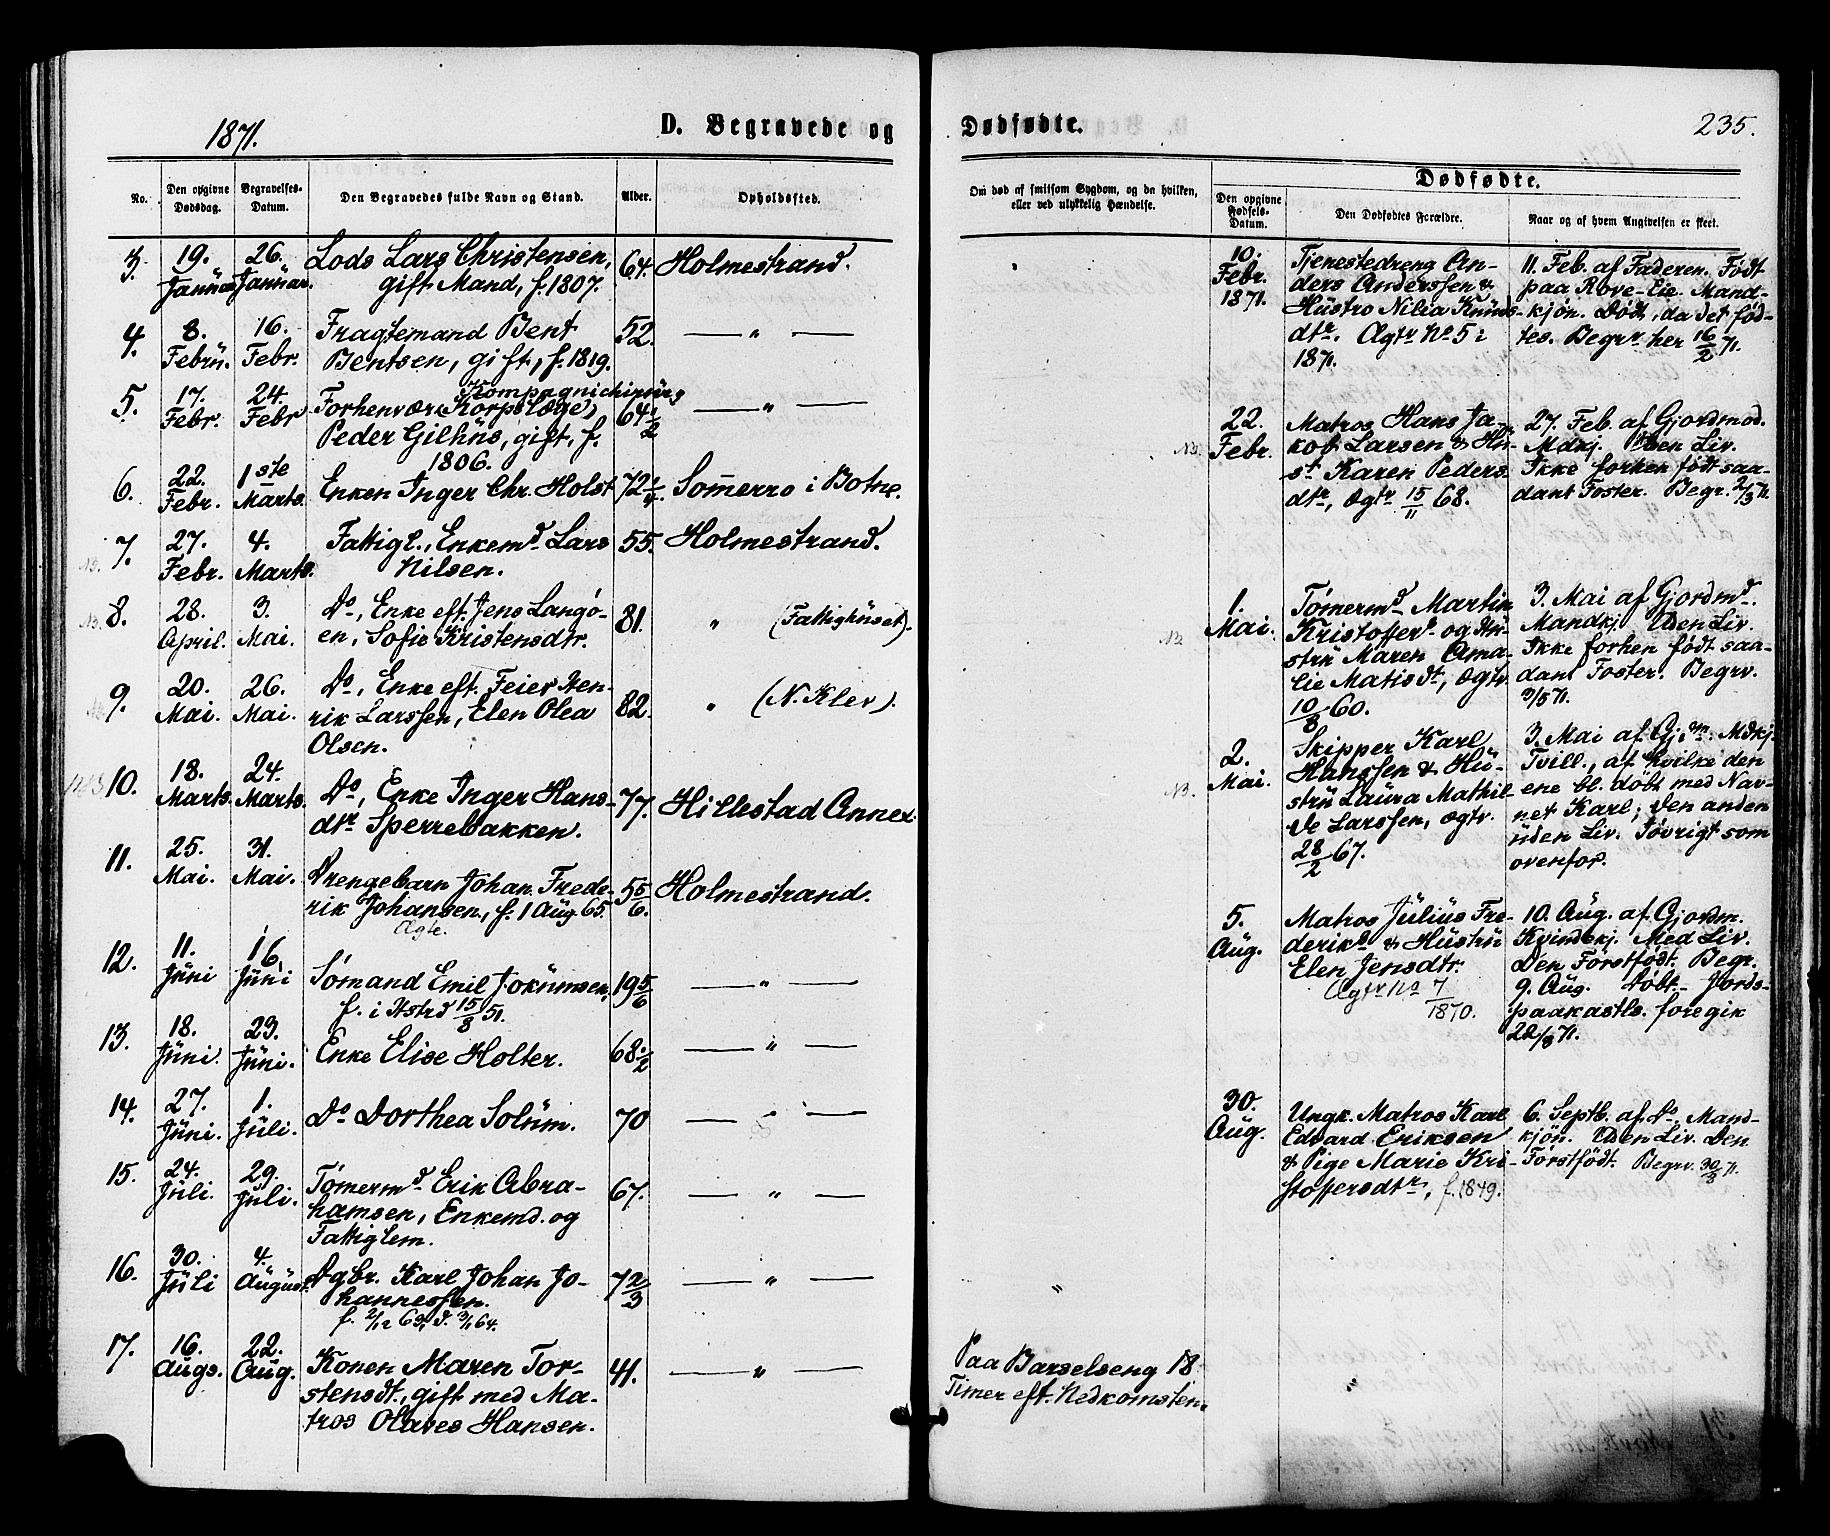 1871.
D. Begravede og
No.
Den opgivne Dødsdag.
Begravelses-Datum.
Den Begravedes fulde Navn og Stand.
Alder.
Opholdssted.
3. 19. Januar 26. Januar. Lods Lars Christensen, 64. Holmestrand.
gift Mand, f. 1807.
4. 8. Febru. 16. Febr. Fragtemand Bent 52. — " —
Bentsen, gift, f. 1819.
5. 17. Febr. 24. Febr Forhenvær. (Korpslæge) Kompagnichirurg 64 1/2 — " —
Peder Gilhus, gift, f.
1806.
6. 22. Febr. 1ste Marts. Enken Inger Chr. Holst 72 1/4 Somerro i Botne.
NB. 7. 27. Febr. 4. Marts. Fattigl., Enkemd. Lars 55. Holmestrand.
Nilsen.
NB. 8. 28. April. 3. Mai. Do, Enke eft. Jens Langø- 81. " (Fattighuset).
en, Sofie Kristensdtr.
9. 20. Mai. 26. Mai. Do, Enke eft. Feier Hen- 82. " (N. Klev).
rik Larssen, Elen Olea
Olsen.
10. 18. Marts. 24. Marts. Do, Enke Inger Hans- 77. Hillestad Annex.
dtr Sperrebakken.
11. 25. Mai. 31. Mai. Drengebarn Johan Frede- 5 5/6. Holmestrand.
rik Johansen, f. 1 Aug. 65.
Ægte.
12. 11. Juni 16. Juni Sømand Emil Jokumsen, 19 5/6 — " —
f. i Hstrd 15/8 51.
13. 18. Juni. 23. Juni. Enke Elise Holter. 68 1/2 — " —
14. 27. Juni. 1. Juli. Do Dorthea Solum. 70 — " —
15. 24. Juli. 29. Juli. Tømermd Erik Abra- 67. — " —
hamsen, Enkemd. og
Fattiglem.
16. 30. Juli 4. August. Dgbr. Karl Johan Jo- 7 2/3 — " —
hannessen.
f. 2/12 63, d. 3/1 64.
17. 16. Augs. 22. Aug. Konen Maren Tor- 41. — " —
stensdt., gift med Ma-
tros Olaves Hansen.
Dødfødte.
235.
Om død af smitsom Sygdom, og da hvilken,
eller ved ulykkelig Hændelse.
Dødfødte.
Den opgivne Fødsels-Datum.
Den Dødfødtes Forældre.
Naar og af hvem Angivelsen er skeet.
"
Paa Barselseng 18
Timer eft. Nedkomsten.
10. Febr. 1871.
Tjenestedreng An-
ders Anderssen &
Hustro Nilia Knuds-
dtr. Ægtv. No 5 i
1871.
11. Feb. af Faderen. Født
paa Rove-Eie. Mand-
kjøn. Dødt, da det fød-
tes. Begrv. her 16/2 71.
NB. 22. Febr.
Matros Hans Ja-
kob Larsen & Hu-
st. Karen Peders
dtr, Ægtv 15/11 68.
27. Feb. af Gjordmod.
Mdkj. Uden Liv.
Ikke forhen født saa-
dant Foster. Begr. 2/3 71.
NB 1. Mai.
Tømermd Martin
Kristoffers. og Hu-
stru Maren Ama-
lie Matisdt, Ægtv.
10/8 60.
3. Mai af Gjordmd.
Mandkj. Uden Liv.
Ikke forhen født saa-
dant Foster. Begrv.
3/5 71.
NB. 2. Mai.
Skipper Karl
Hanssen & Hu-
stru Laura Mathil-
de Larssen, Ægtv.
28/2 67.
3. Mai af Gj.m. Mdkj.
Tvill., af hvilke den
ene bl. døbt med Nav-
net Karl; den anden
uden Liv. Iøvrigt som
ovenfor.
5. Aug.
Matros Julius Fre-
deriks. & Hustru
Elen Jensdtr.
Ægtv No 7/1870.
10. Aug. af Gjordm.
Kvindekj. Med Liv.
Den Førstfødt. Begr.
9. Aug. Døbt. Jords-
paakastls. foregik
22/8 71.
30. Aug.
Ungk. Matros Karl
Edvard Eriksen
& Pige Marie Kri-
stoffersdtr, f. 1849.
6. Septb. af Do. Mand-
kjøn. Uden Liv. Den
Førstfødt. Begrv. 30/8 71.
"